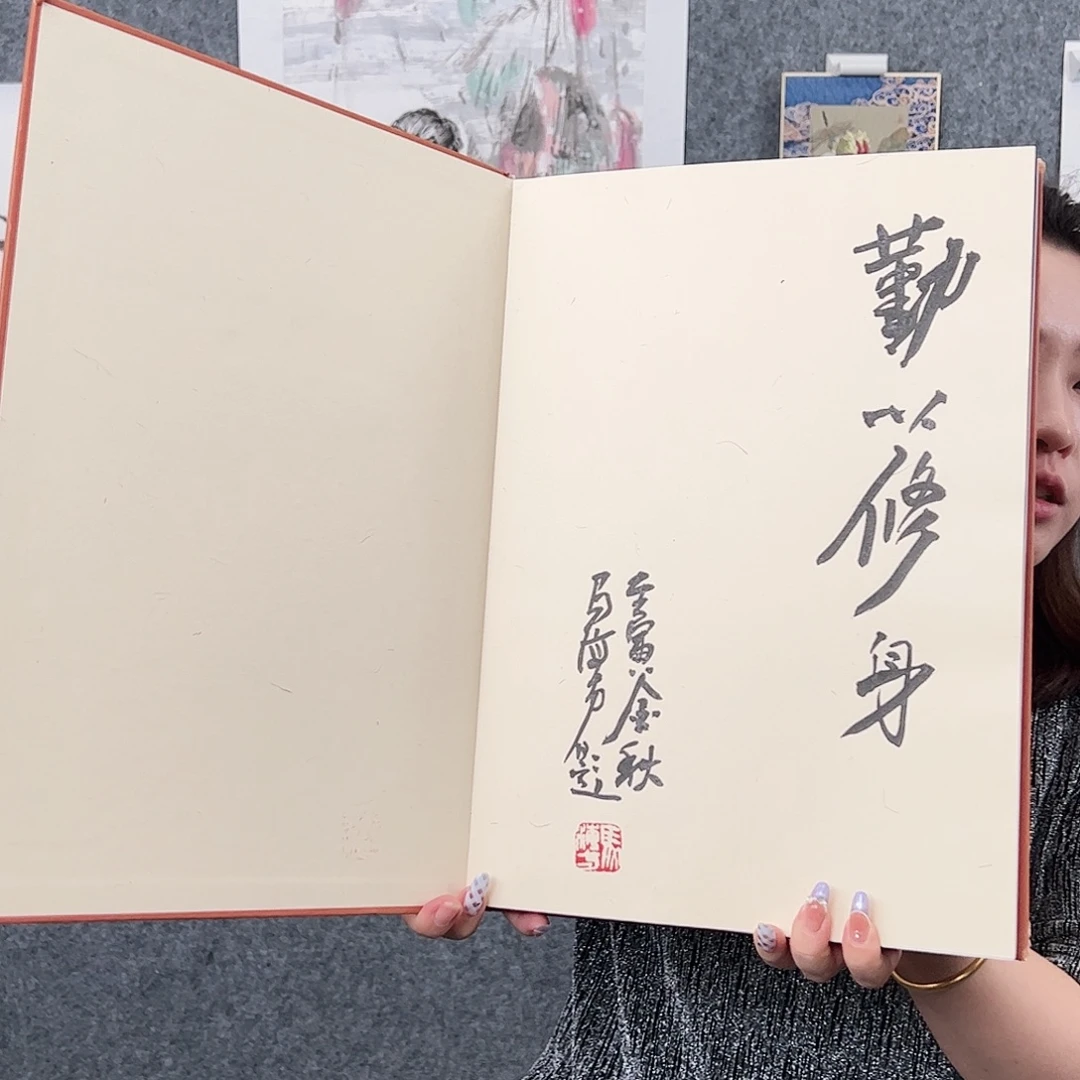 勤以修身
壬寅金秋
马海方题
馬海方